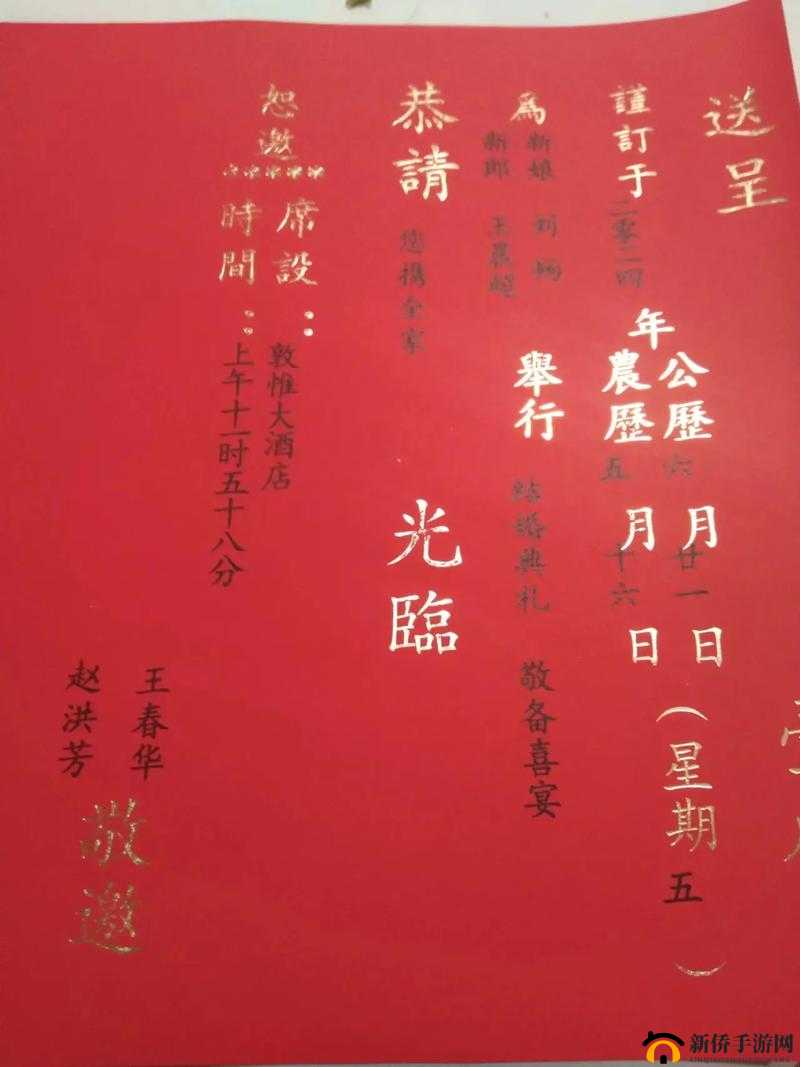 送呈
謹訂于二零二四年公歷六月廿一日（星期五）
農歷五月十六日
為新娘 刘
新郎 王晨超
舉行 结婚典礼 敬备喜宴
恭請 您携全家 光臨
恕邀
席設：敦惟大酒店
時間：上午十一时五十八分
王春华
赵洪芳
敬邀
新侨手游网